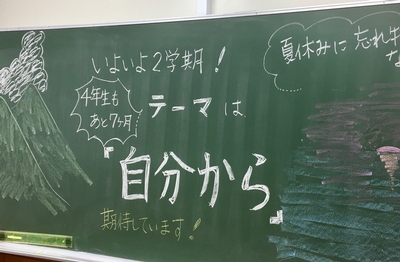 いよいよ2学期!
4年生も
あと7ヶ月
テーマは
『自分から』
期待しています!
夏休みに忘れ
な